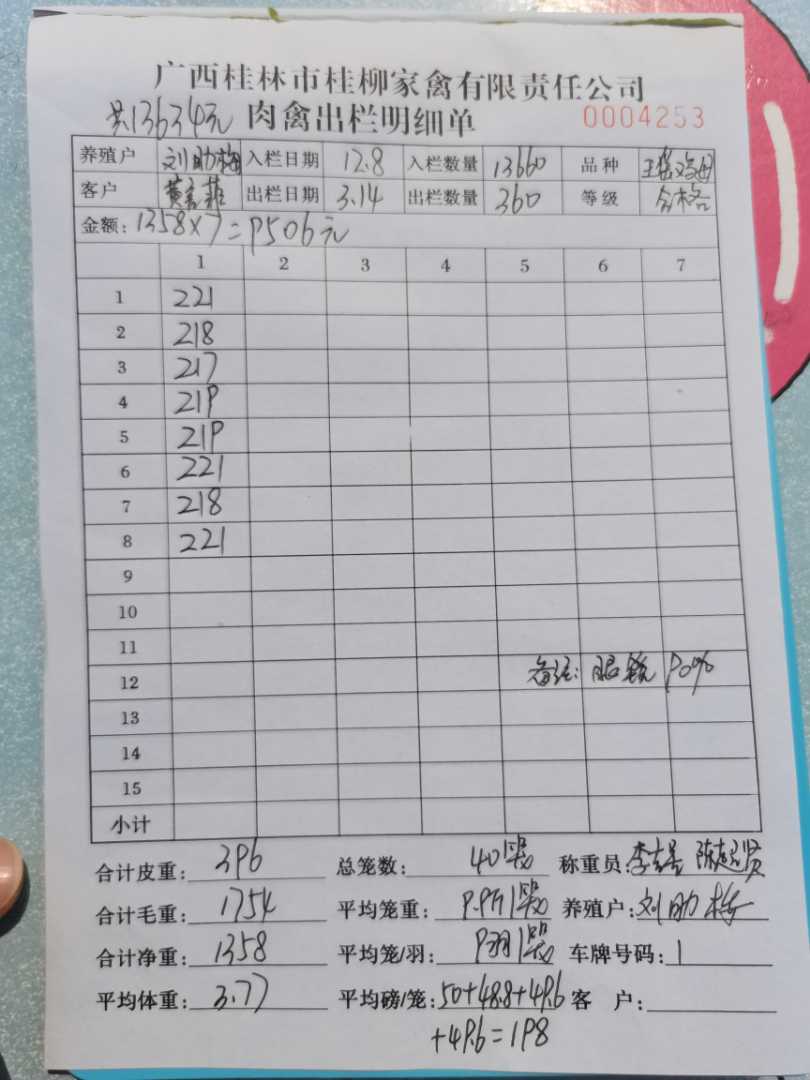 广西桂林市桂柳家禽有限责任公司
共136340元 肉禽出栏明细单 0004253
养殖户 刘助梅 入栏日期 12.8 入栏数量 13660 品种
客户 出栏日期 3.14 出栏数量 360 等级 合格
金额: 1358×7=9506元
1 2 3 4 5 6 7
1 221
2 218
3 217
4 219
5 219
6 221
7 218
8 221
9
10
11
12 备注: 眼镜 90%
13
14
15
小计
合计皮重: 396 总笼数: 40 称重员:
合计毛重: 1754 平均笼重: 9.9斤/ 养殖户: 刘助梅
合计净重: 1358 平均笼/羽: 9羽/ 车牌号码: 1
平均体重: 3.77 平均磅/笼: 50+48.8+49.6 客 户:
+49.6=198